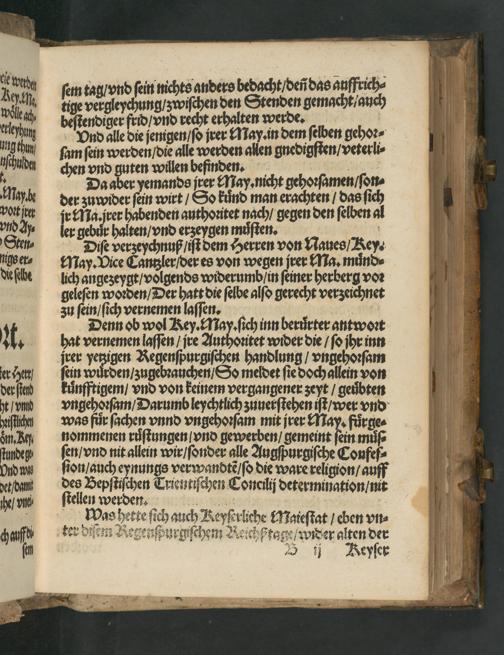 sem tag/vnd sein nichts anders bedacht/deñ das auffrich-
tige vergleychung/zwischen den Stenden gemacht/auch
bestendiger frid/vnd recht erhalten werde.
Vnd alle die jenigen/so jrer May.in dem selben gehor-
sam sein werden/die alle werden allen gnedigsten/veterli-
chen vnd guten willen befinden.
Da aber yemands jrer May.nicht gehorsamen/son-
der zuwider sein wirt/So künd man erachten/das sich
jr Ma.jrer habenden authoritet nach/gegen den selben al
ler gebür halten/vnd erzeygen müsten.
Dise verzeychnuß/ist dem Herren von Naues/Key.
May.Vice Cantzler/der es von wegen jrer Ma. münd-
lich angezeygt/volgends widerumb/in seiner herberg vor
gelesen worden/Der hatt die selbe also gerecht verzeichnet
zu sein/sich vernemen lassen.
Denn ob wol Key.May.sich inn berürter antwort
hat vernemen lassen/jre Authoritet wider die/so jhr inn
jrer yetzigen Regenspurgischen handlung/vngehorsam
sein würden/zugebrauchen/So meldet sie doch allein von
künfftigem/vnd von keinem vergangener zeyt/geübten
vngehorsam/Darumb leychtlich zuuerstehen ist/wer vnd
was für sachen vnnd vngehorsam mit jrer May. fürge-
nommenen rüstungen/vnd gewerben/gemeint sein müs-
sen/vnd nit allein wir/sonder alle Augspurgische Confes-
sion/auch eynungs verwandtē/so die ware religion/auff
des Bepstischen Trientischen Concilij determination/nit
stellen werden.
Was hette sich auch Keyserliche Maiestat/eben vn-
ter disem Regenspurgischem Reichßtage/wider alten der
B ij Keyser